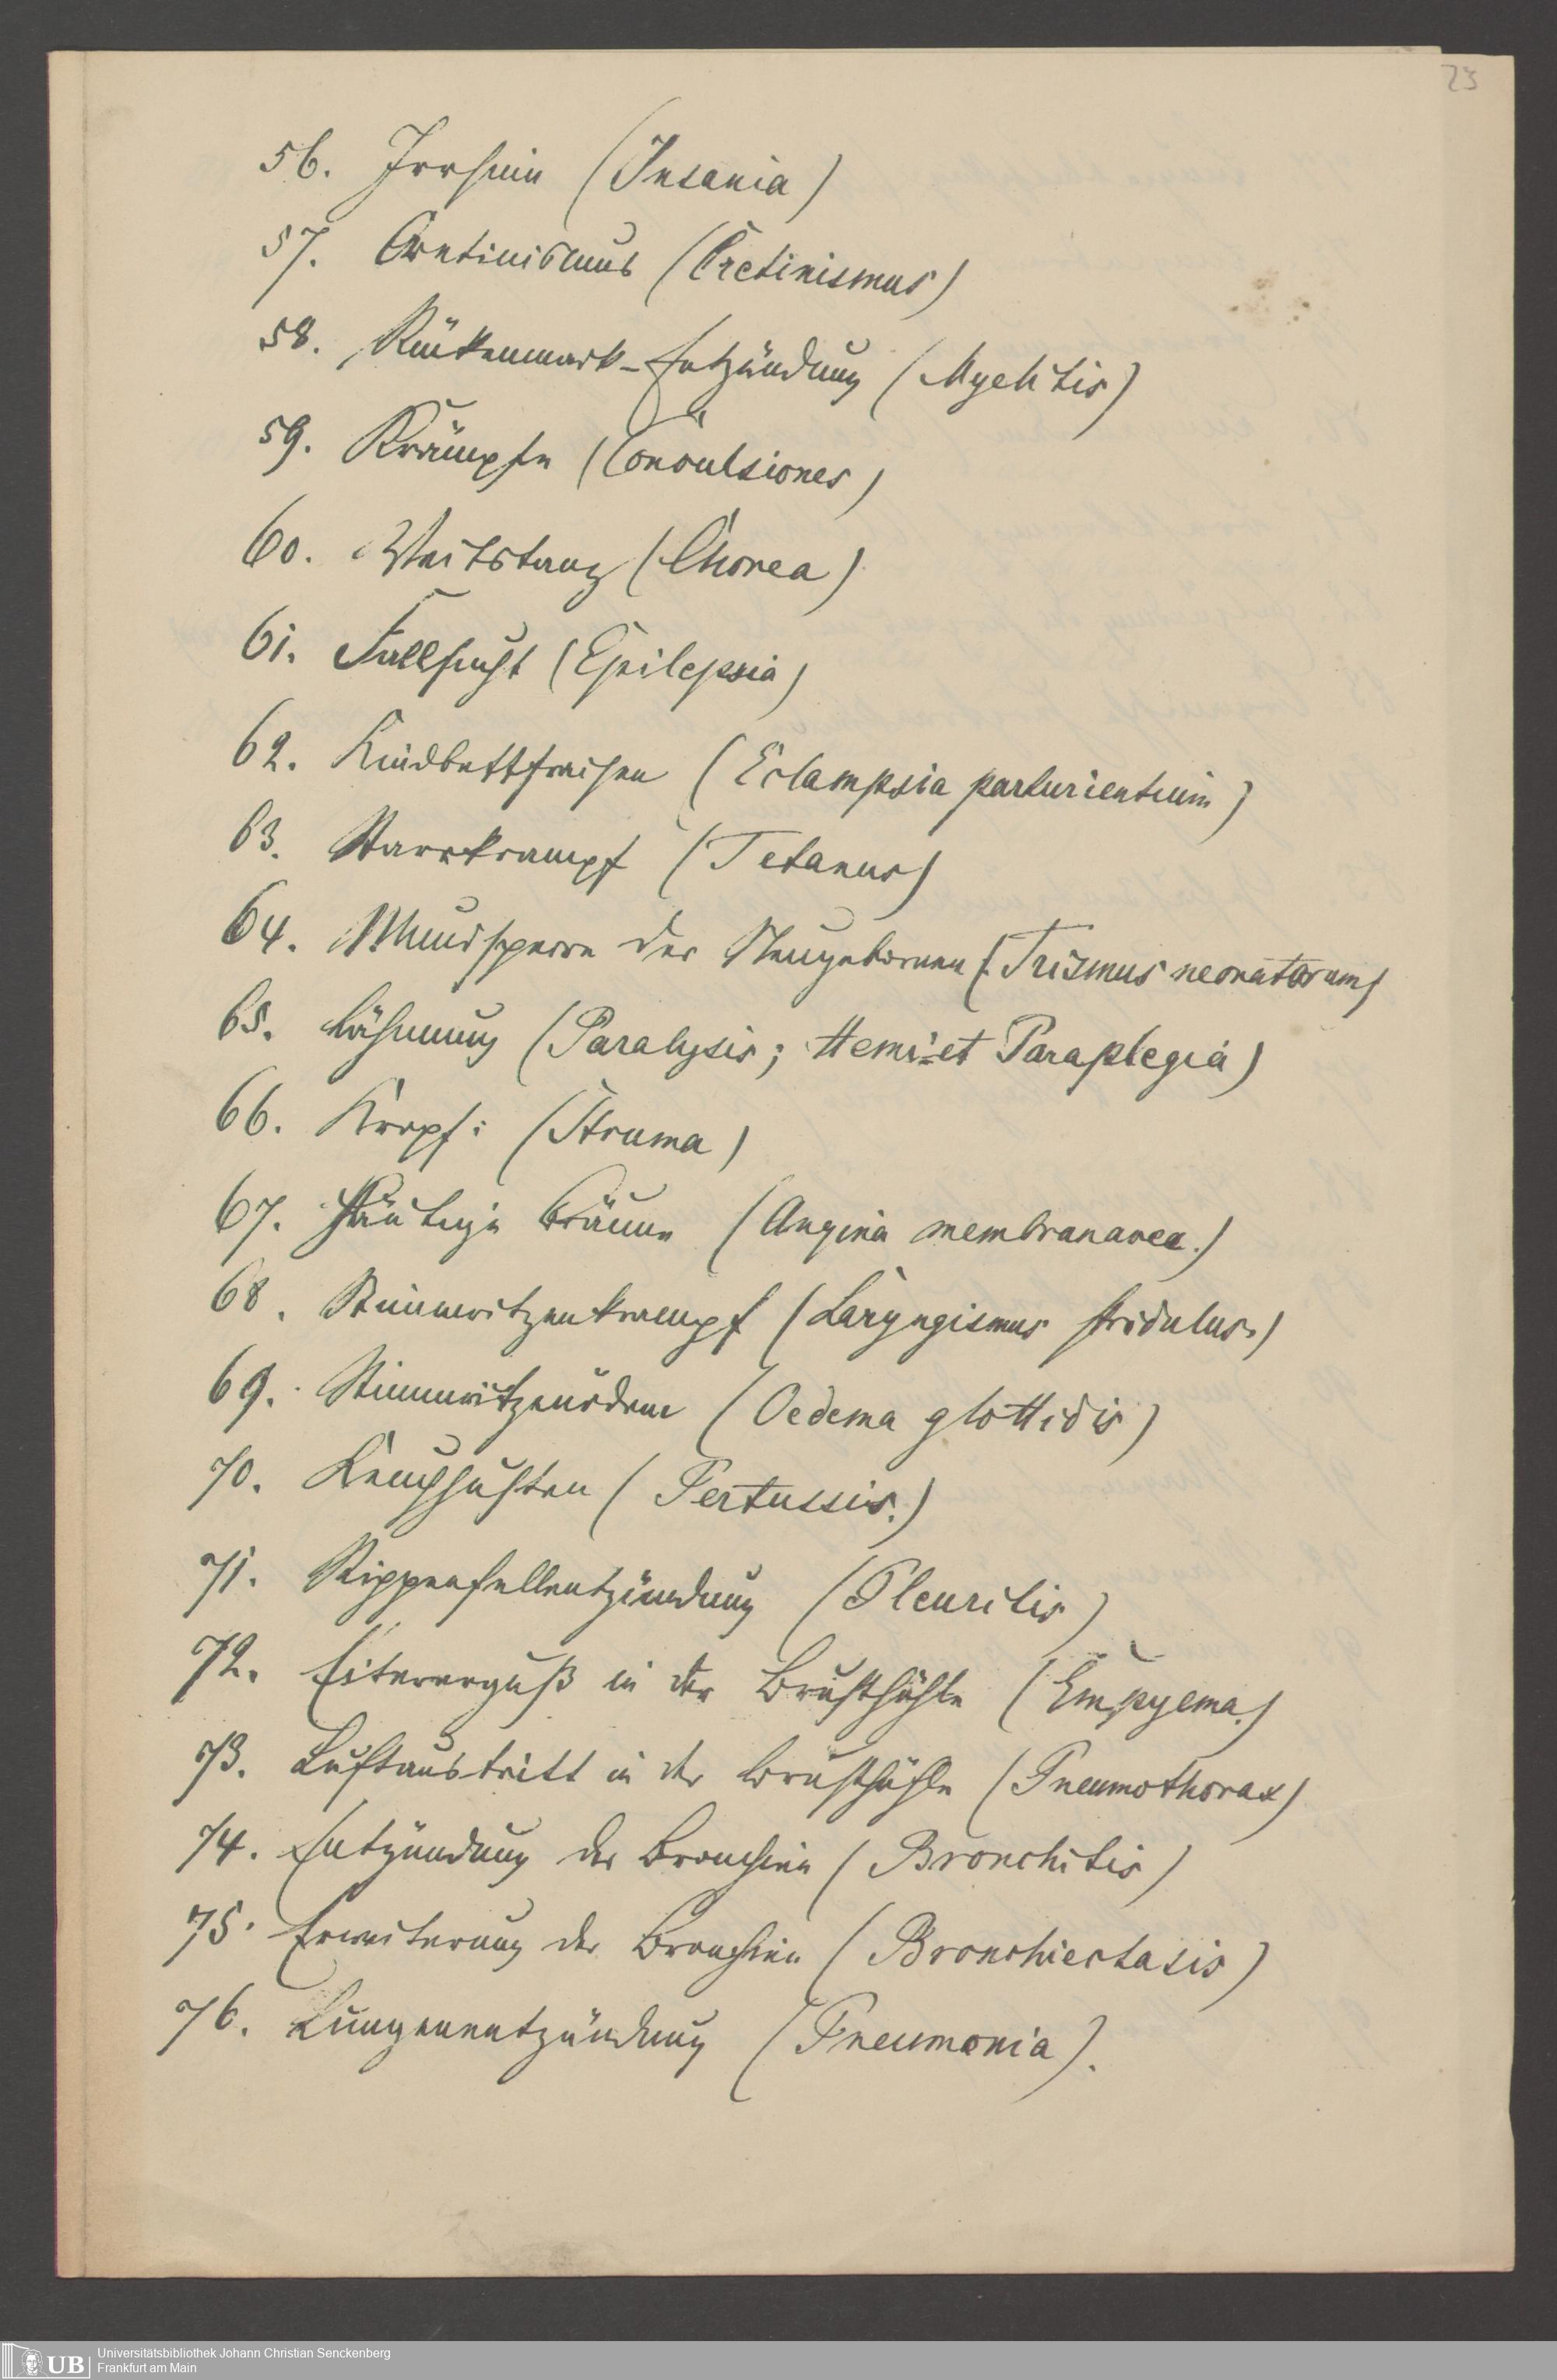 23
56. Irrsinn (Insania)
57. Cretinismus (Cretinismus)
58. Rückenmark-Entzündung (Myelitis)
59. Krämpfe (Convulsiones)
60. Veitstanz (Chorea)
61. Fallsucht (Epilepsia)
62. Kindbettfraisen (Eclampsia parturientium)
63. Starrkrampf (Tetanus)
64. Mundsperre der Neugebornen (Trismus neonatorum)
65. Lähmung (Paralysis; Hemi-et Paraplegia)
66. Kropf: (Struma)
67. Häutige Bräune (Angina membranacea.)
68. Stimmritzenkrampf (Laryngismus stridulus.)
69. Stimmritzenödem (Oedema glottidis)
70. Keuchhusten (Pertussis.)
71. Rippenfellentzündung (Pleuritis)
72. Eitererguß in der Brusthöhle (Empyema.)
73. Luftaustritt in der Brusthöhle (Pneumothorax)
74. Entzündung der Bronchien (Bronchitis)
75. Erweiterung der Bronchien (Bronchiectasis)
76. Lungenentzündung (Pneumonia).
UB
Universitätsbibliothek Johann Christian Senckenberg
Frankfurt am Main